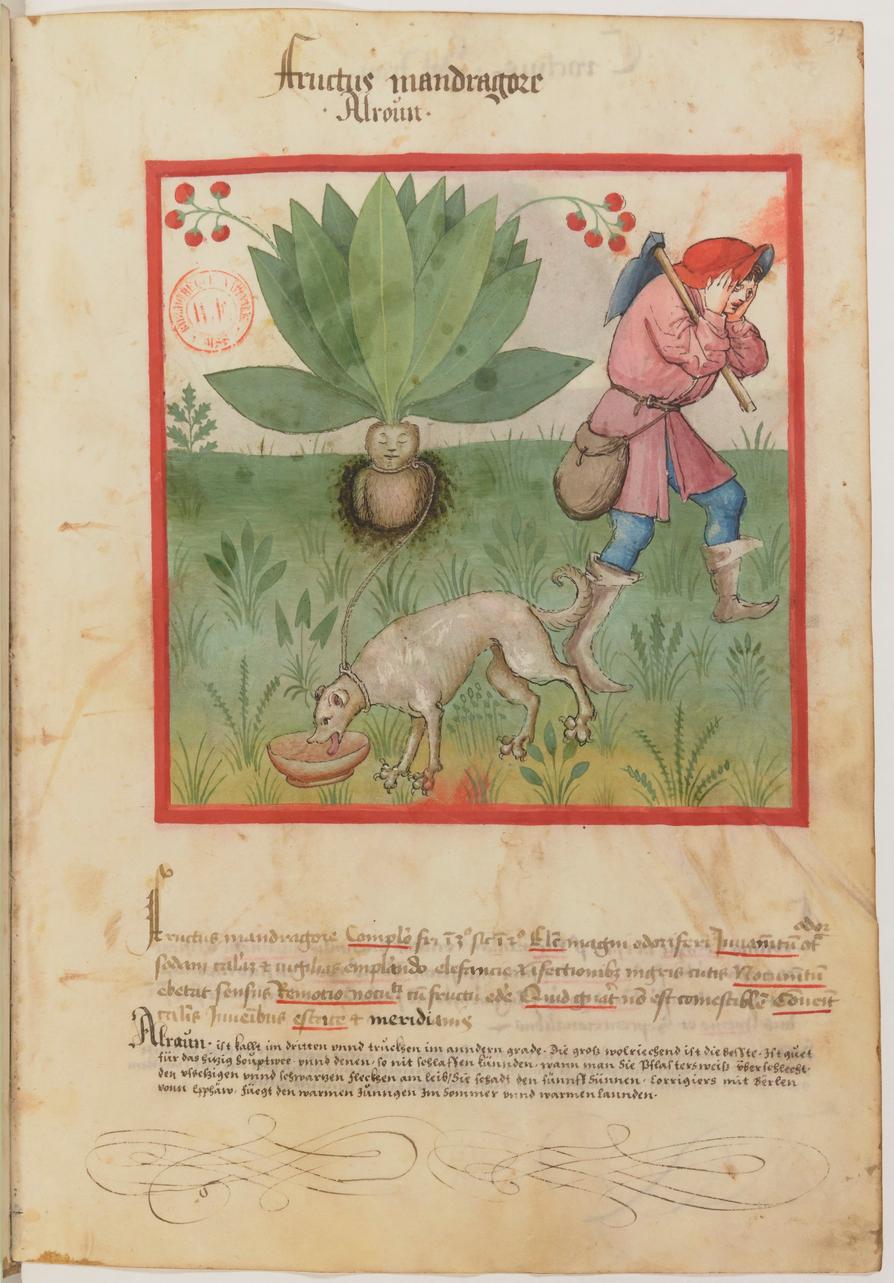 37
Fructus mandragore
· Alroün ·
BIBLIOTHEQUE
odor
Fructus mandragore Complo fri ī 3° sic ī 2° Elc̄ magni odoriferi Iuuamtū of
sodam caliz & vigilias emplando elefancie & ifectionibz nigris cutis Nocumtū
ebetat sensus Remotio nocuti cū fructu edere Quid gnat nō est comestible Cōuenit
calis Iuuēibus estate & meridians
Alraün · ist kallt im dritten vnnd truckhen im anndern grade · Die groß wolriechend ist die besste · Ist guet
für das hitzig houptwee · vnnd denen · so nit schlaffen künnden · wann man Sie Pflastersweiß überschlecht ·
den vssetzigen vnnd schwartzen fleckhen am leib / Sie schadt den fünnff sünnen · Corrigiers mit Berlen
vonn Epphäw · Füegt den warmen Jüngen Im Sommer vnnd warmen lannden ·